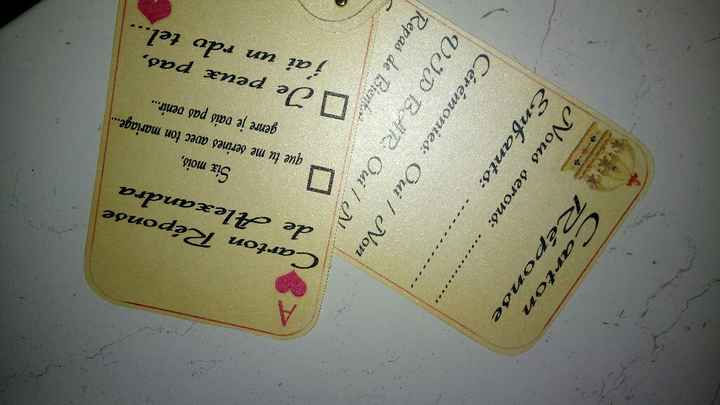 Carton
Réponse
Nous serons: ........
Enfants: ............
Cérémonies: Oui / Non
V.I.P B.A.R: Oui / N
Repas de Bienv..
A
Carton Réponse
de Alexandra
Six mois,
que tu me serines avec ton mariage...
genre je vais pas venir...
Je peux pas,
j'ai un rdv tel...